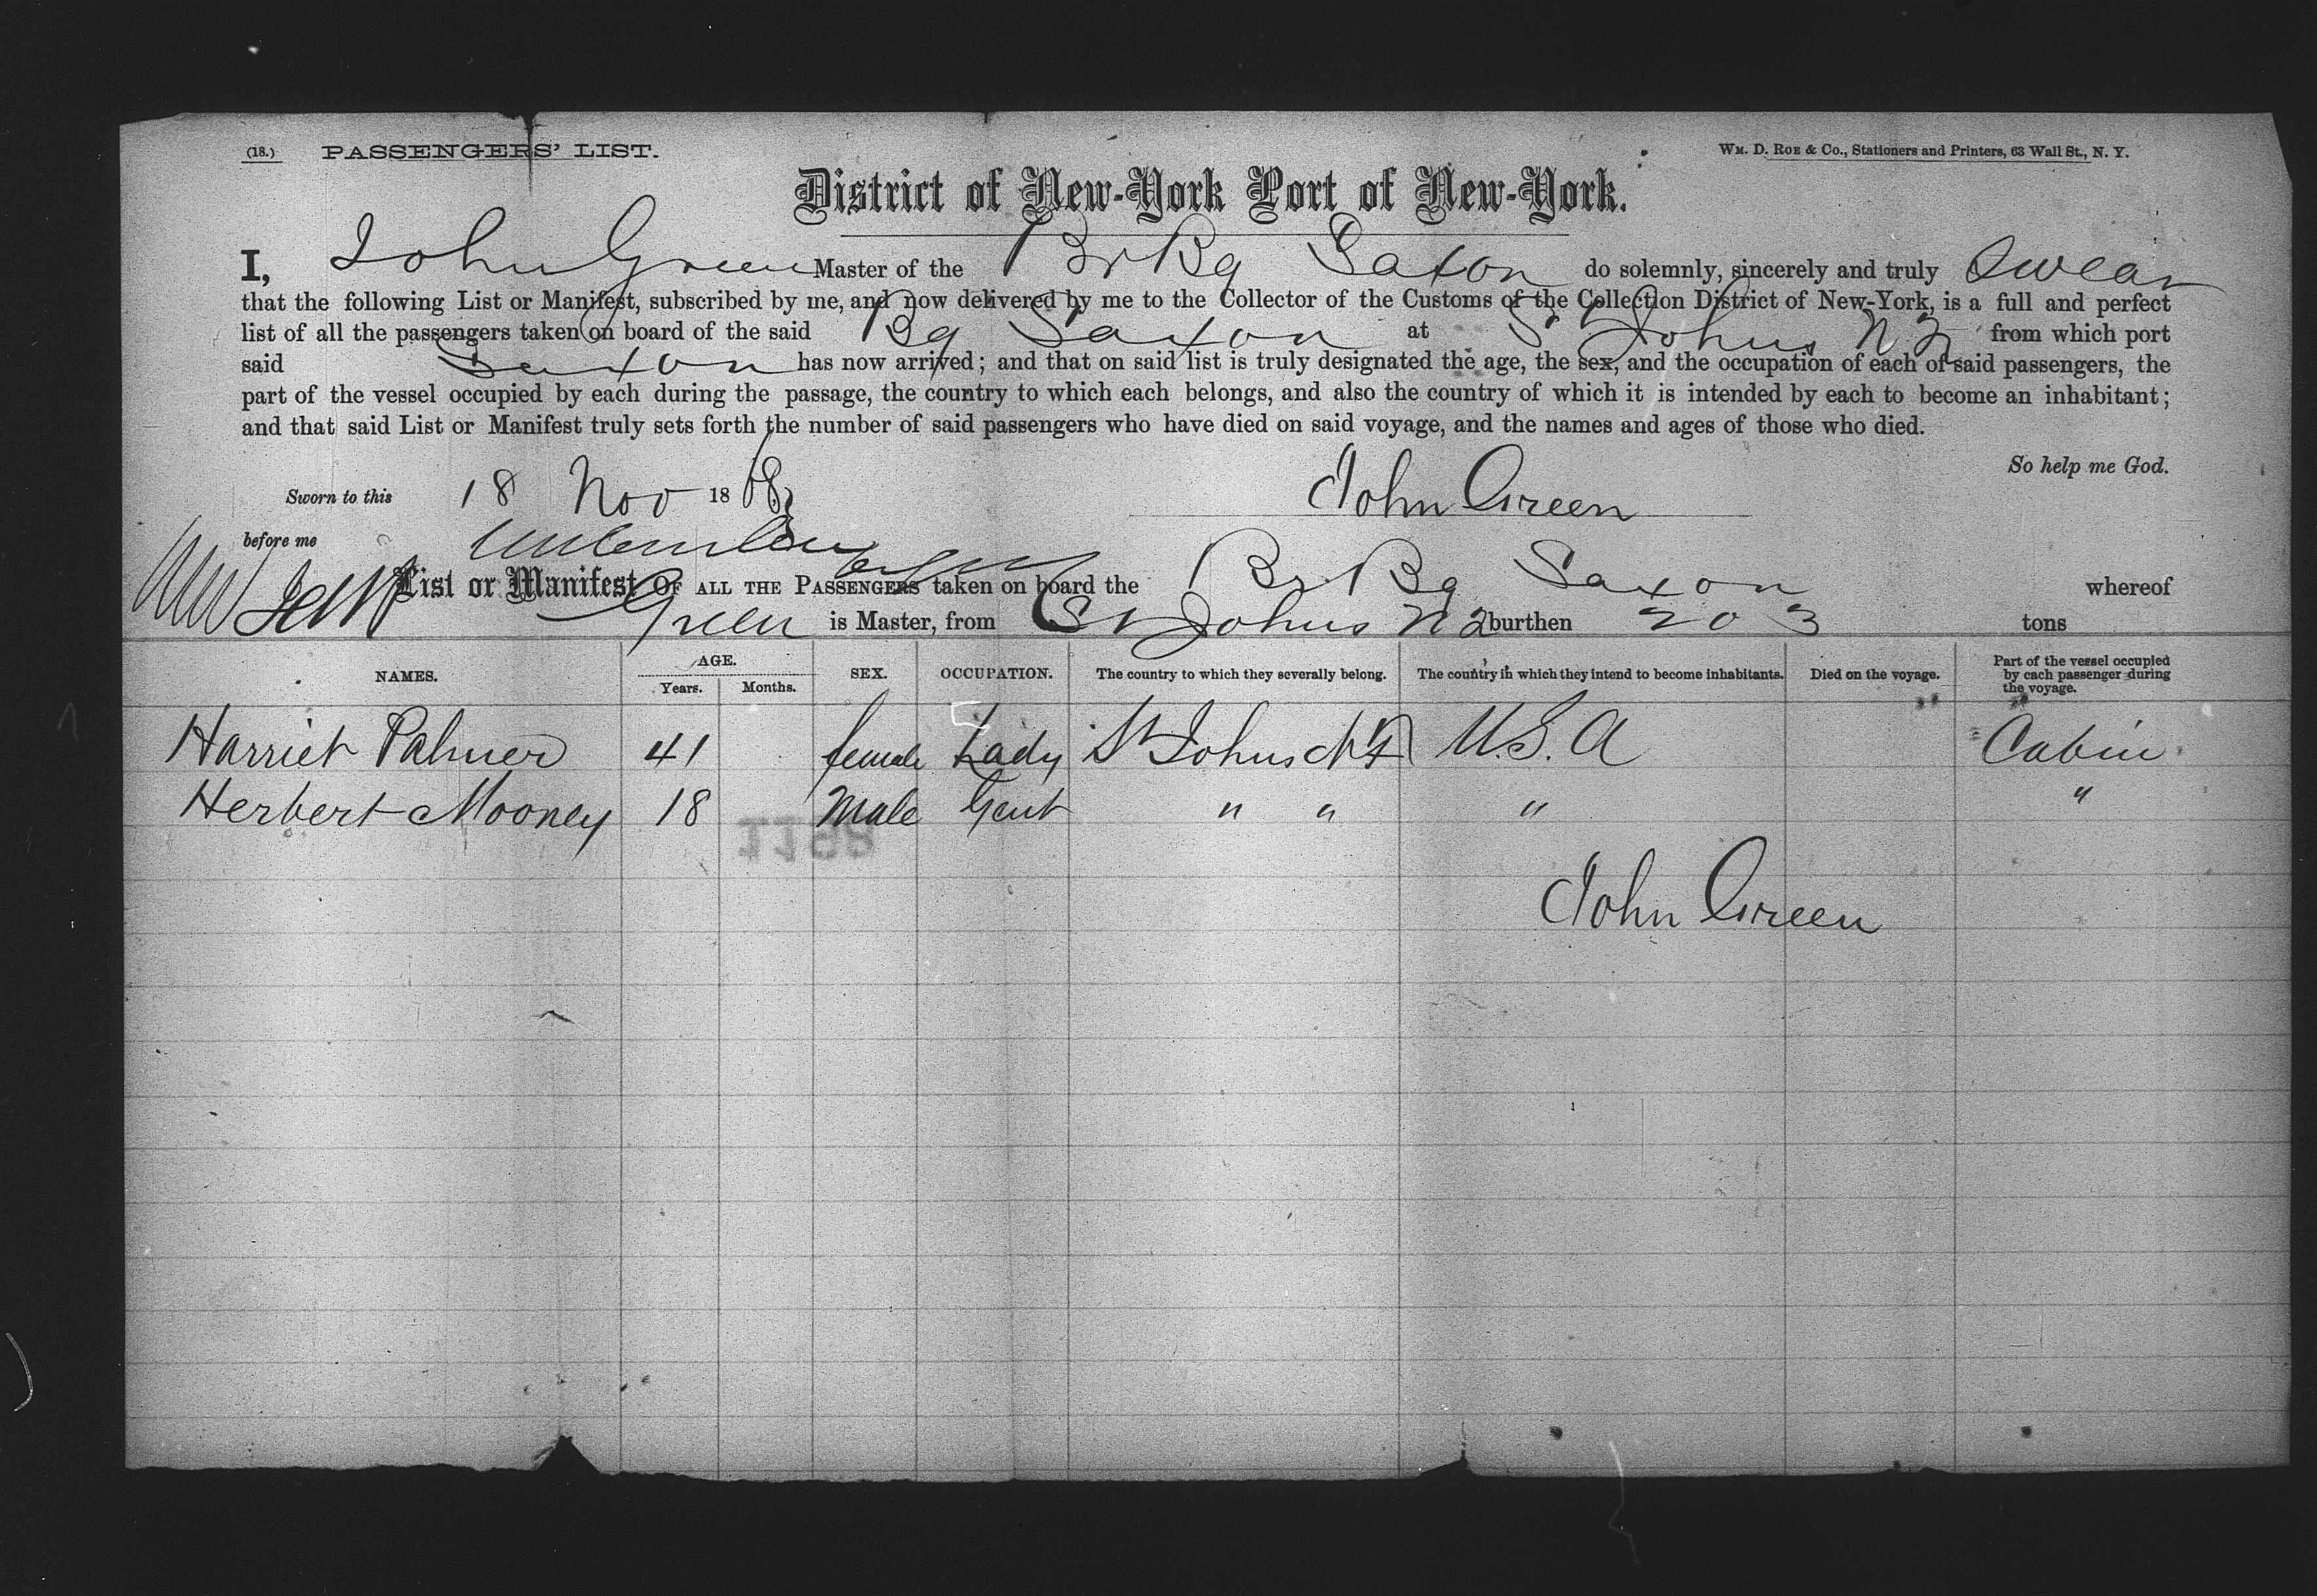 (18.) PASSENGERS' LIST. WM. D. ROE & CO., Stationers and Printers, 63 Wall St., N. Y.
District of New-York Port of New-York.
I, John Green Master of the Br Bg Saxon do solemnly, sincerely and truly Swear
that the following List or Manifest, subscribed by me, and now delivered by me to the Collector of the Customs of the Collection District of New-York, is a full and perfect
list of all the passengers taken on board of the said Bg Saxon at St Johns from which port
said Saxon has now arrived; and that on said list is truly designated the age, the sex, and the occupation of each of said passengers, the
part of the vessel occupied by each during the passage, the country to which each belongs, and also the country of which it is intended by each to become an inhabitant;
and that said List or Manifest truly sets forth the number of said passengers who have died on said voyage, and the names and ages of those who died.
So help me God.
Sworn to this 18 Nov 1868 John Green
before me
List or Manifest OF ALL THE PASSENGERS taken on board the Br Bg Saxon whereof
Green is Master, from St Johns burthen 203 tons
NAMES. AGE. Years. Months. SEX. OCCUPATION. The country to which they severally belong. The country in which they intend to become inhabitants. Died on the voyage. Part of the vessel occupied by each passenger during the voyage.
Harriet Palmer 41 female Lady St Johns U.S.A Cabin
Herbert Mooney 18 Male Gent " " " "
1168
John Green